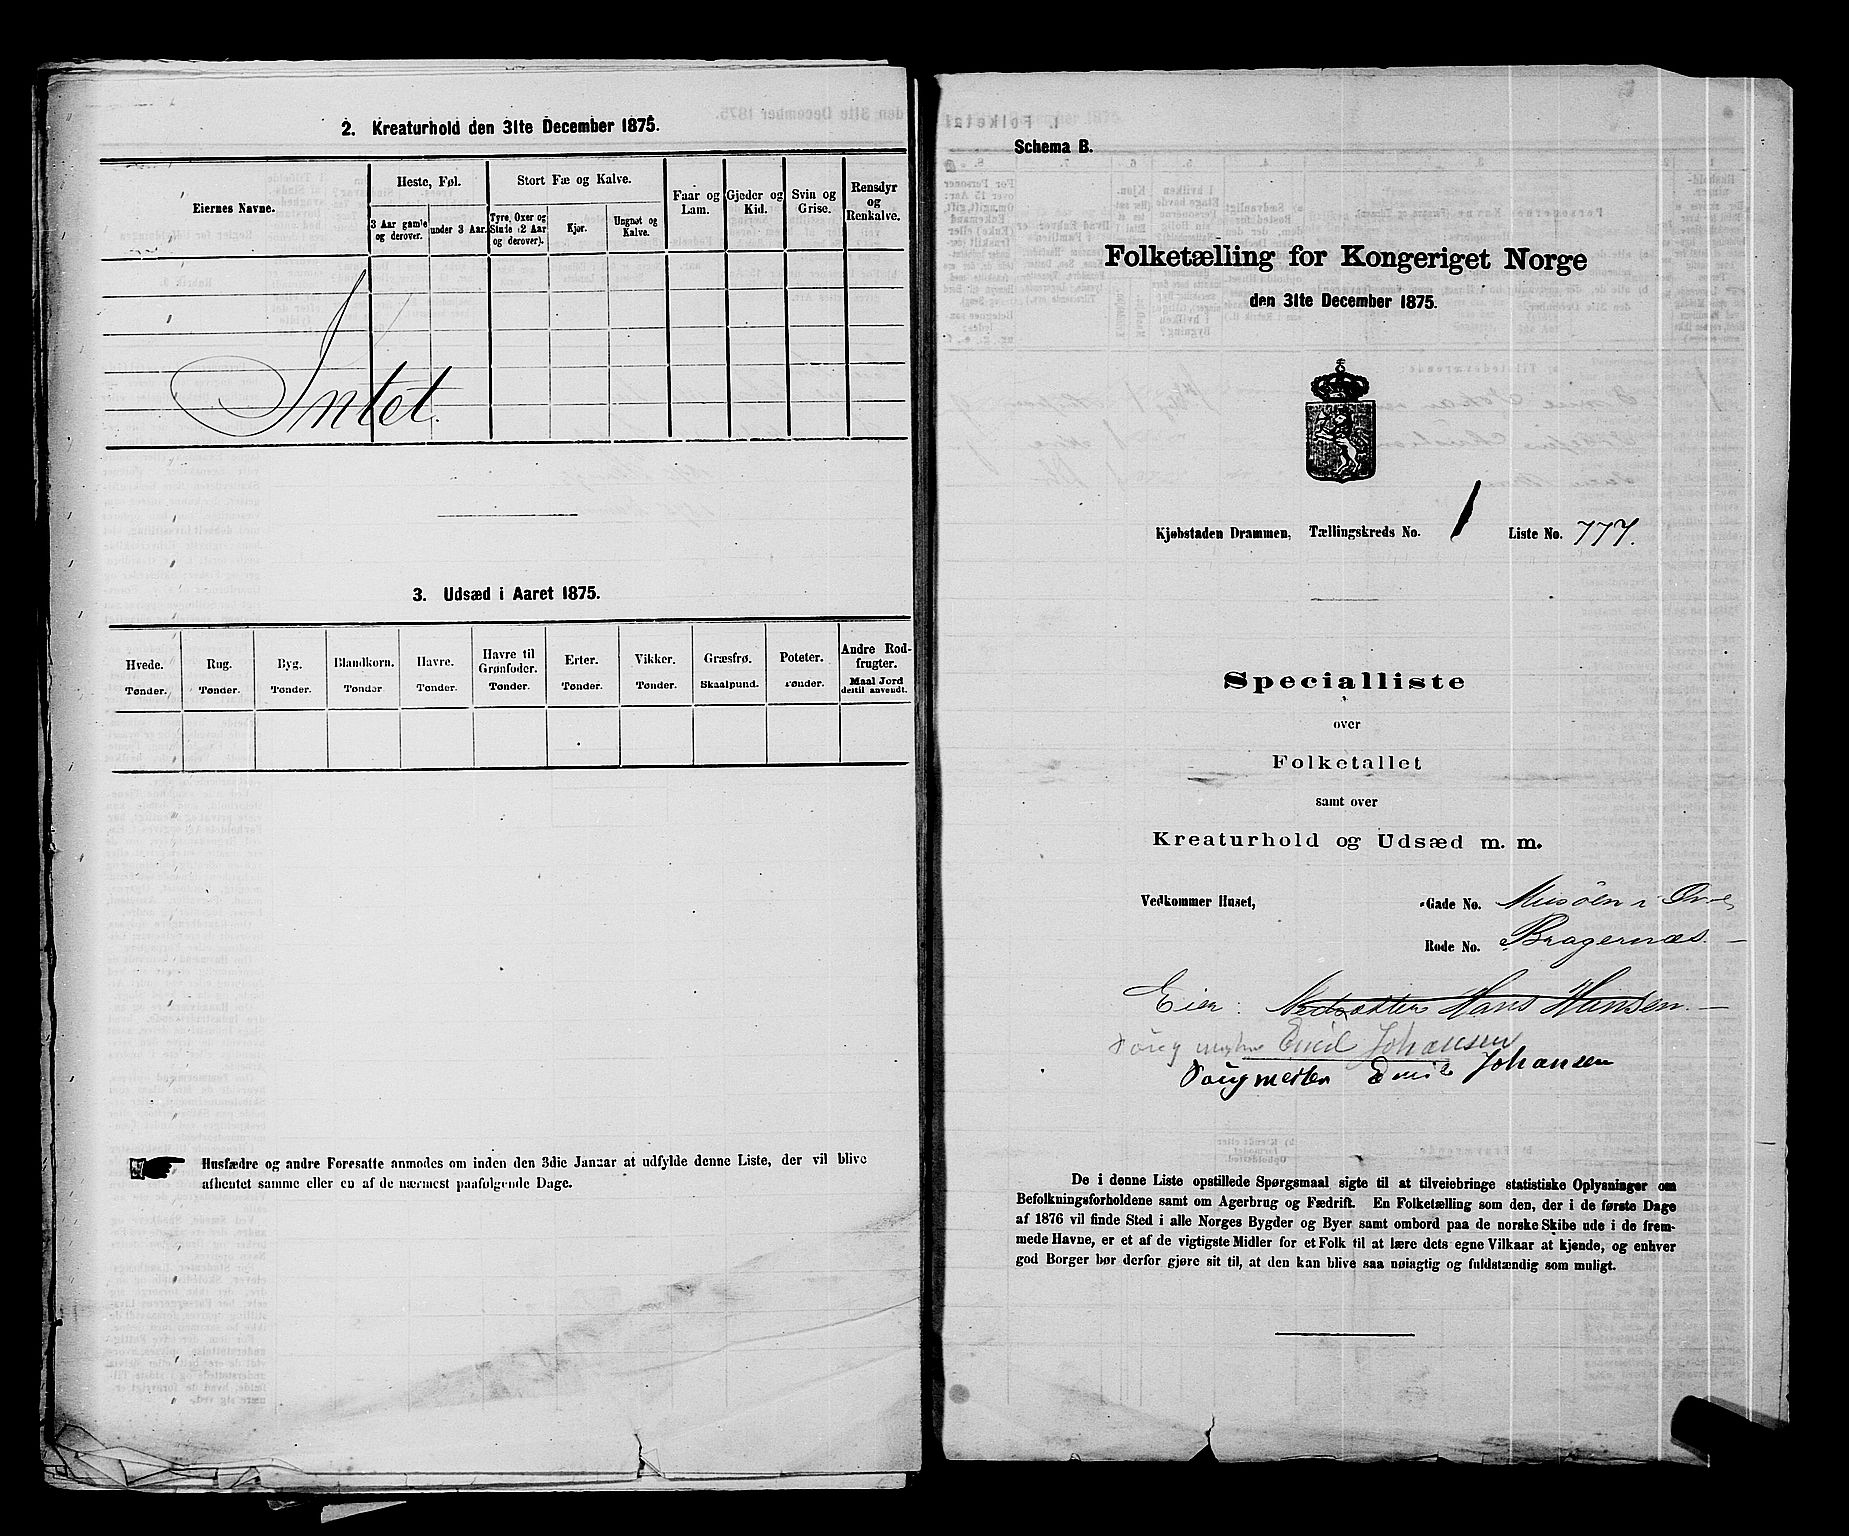 2. Kreaturhold den 31te December 1875.
Eiernes Navne.
Heste, Føl.
Stort Fæ og Kalve.
Faar og Lam.
Gjeder og Kid.
Svin og Grise.
Rensdyr og Renkalve.
3 Aar gamle og derover.
under 3 Aar.
Tyre, Oxer og Stude (2 Aar og derover).
Kjør.
Ungnøt og Kalve.
Intet.
3. Udsæd i Aaret 1875.
Hvede. Rug. Byg. Blandkorn. Havre. Havre til Grønfoder. Erter. Vikker. Græsfrø. Poteter. Andre Rodfrugter.
Tønder. Tønder. Tønder. Tønder Tønder. Tønder. Tønder. Tønder. Skaalpund. Tønder. Maal Jord dertil anvendt.
Husfædre og andre Foresatte anmodes om inden den 3die Januar at udfylde denne Liste, der vil blive
afhentet samme eller en af de nærmest paafølgende Dage.
Schema B.
Folketælling for Kongeriget Norge
den 31te December 1875.
Kjøbstaden Drammen, Tællingskreds No. 1 Liste No. 777.
Specialliste
over
Folketallet
samt over
Kreaturhold og Udsæd m. m.
Vedkommer Huset, Gade No. Miusøen i
Rode No. Bragernæs
Eier: Hans Hansen.
Emil Johansen
Farigmester Emil Johansen
De i denne Liste opstillede Spørgsmaal sigte til at tilveiebringe statistiske Oplysninger om
Befolkningsforholdene samt om Agerbrug og Fædrift. En Folketælling som den, der i de første Dage
af 1876 vil finde Sted i alle Norges Bygder og Byer samt ombord paa de norske Skibe ude i de frem-
mede Havne, er et af de vigtigste Midler for et Folk til at lære dets egne Vilkaar at kjende, og enhver
god Borger bør derfor gjøre sit til, at den kan blive saa nøiagtig og fuldstændig som muligt.